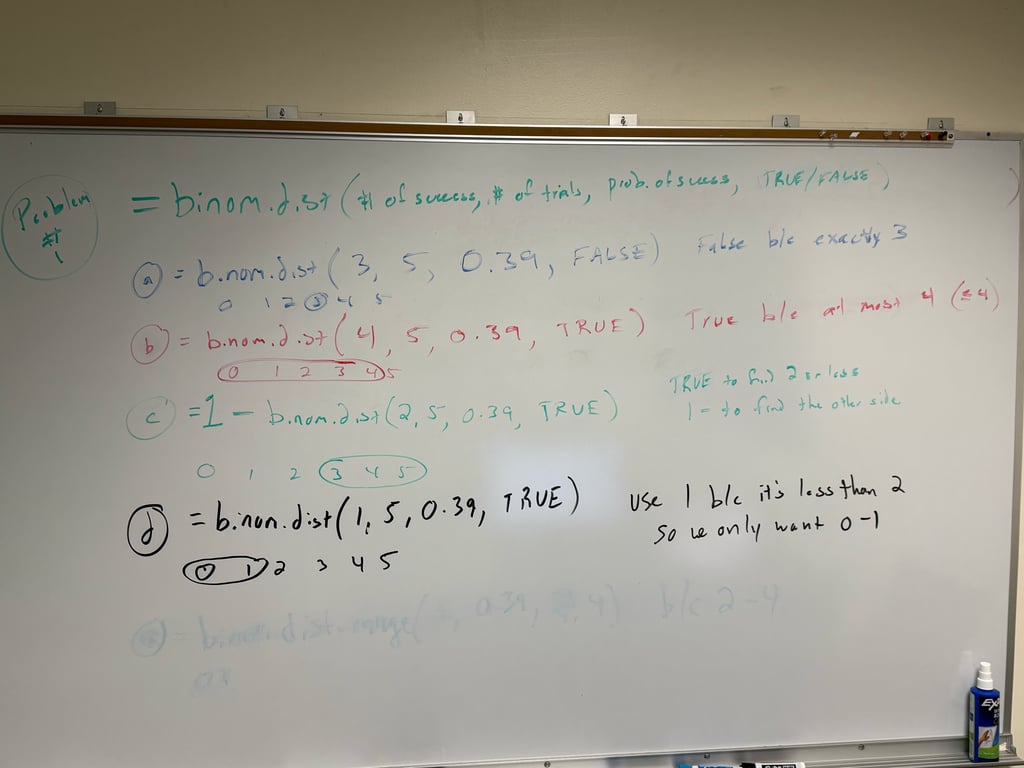 Problem #1
= binom.dist (# of success, # of trials, prob. of success, TRUE/FALSE)
(a) = binom.dist (3, 5, 0.39, FALSE) False b/c exactly 3
0 1 2 3 4 5
(b) = binom.dist (4, 5, 0.39, TRUE) True b/c at most 4 (≤4)
0 1 2 3 4 5
(c) = 1 - binom.dist (2, 5, 0.39, TRUE) TRUE to find 2 or less
1 - to find the other side
0 1 2 3 4 5
(d) = binom.dist (1, 5, 0.39, TRUE) use 1 b/c it's less than 2
so we only want 0-1
0 1 2 3 4 5
= binom.dist.range( , 0.39, , 4) b/c 2-4
EXPO